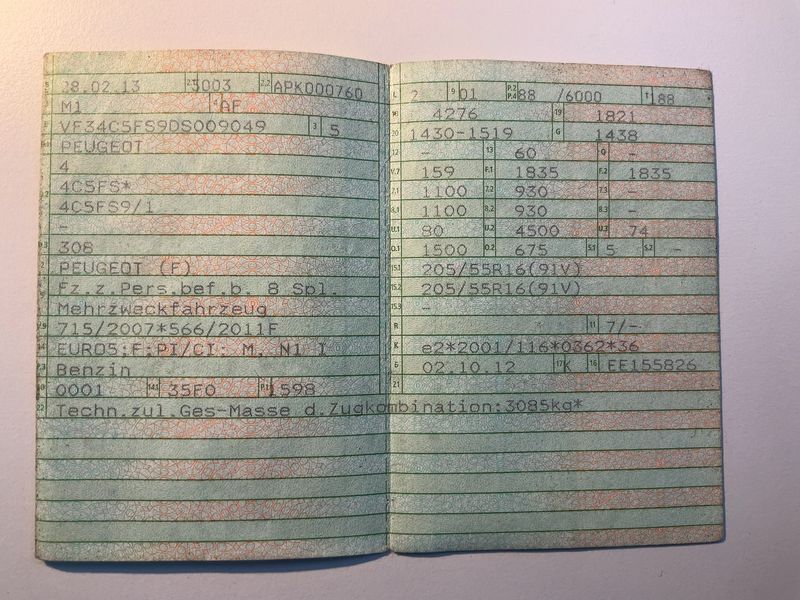 28.02.13 2.1 3003 2.2 APK000760
M1 4 AF
VF34C5FS9DS009049 3 5
PEUGEOT
4
4C5FS*
4C5FS9/1
-
308
PEUGEOT (F)
Fz.z.Pers.bef.b. 8 Spl.
Mehrzweckfahrzeug
715/2007*566/2011F
EURO5;F;PI/CI; M, N1 I
Benzin
0001 35F0 P.1 1598
22 Techn.zul.Ges-Masse d.Zugkombination:3085kg*
L 2 9 01 P.2 P.4 88 /6000 T 188
18 4276 19 1821
20 1430-1519 G 1438
12 - 13 60 Q -
V.7 159 F.1 1835 F.2 1835
7.1 1100 7.2 930 7.3 -
8.1 1100 8.2 930 8.3 -
U.1 80 U.2 4500 U.3 74
O.1 1500 O.2 675 S.1 5 S.2 -
15.1 205/55R16(91V)
15.2 205/55R16(91V)
15.3 -
R 11 7/-
K e2*2001/116*0362*36
6 02.10.12 17 K 16 EE155826
21